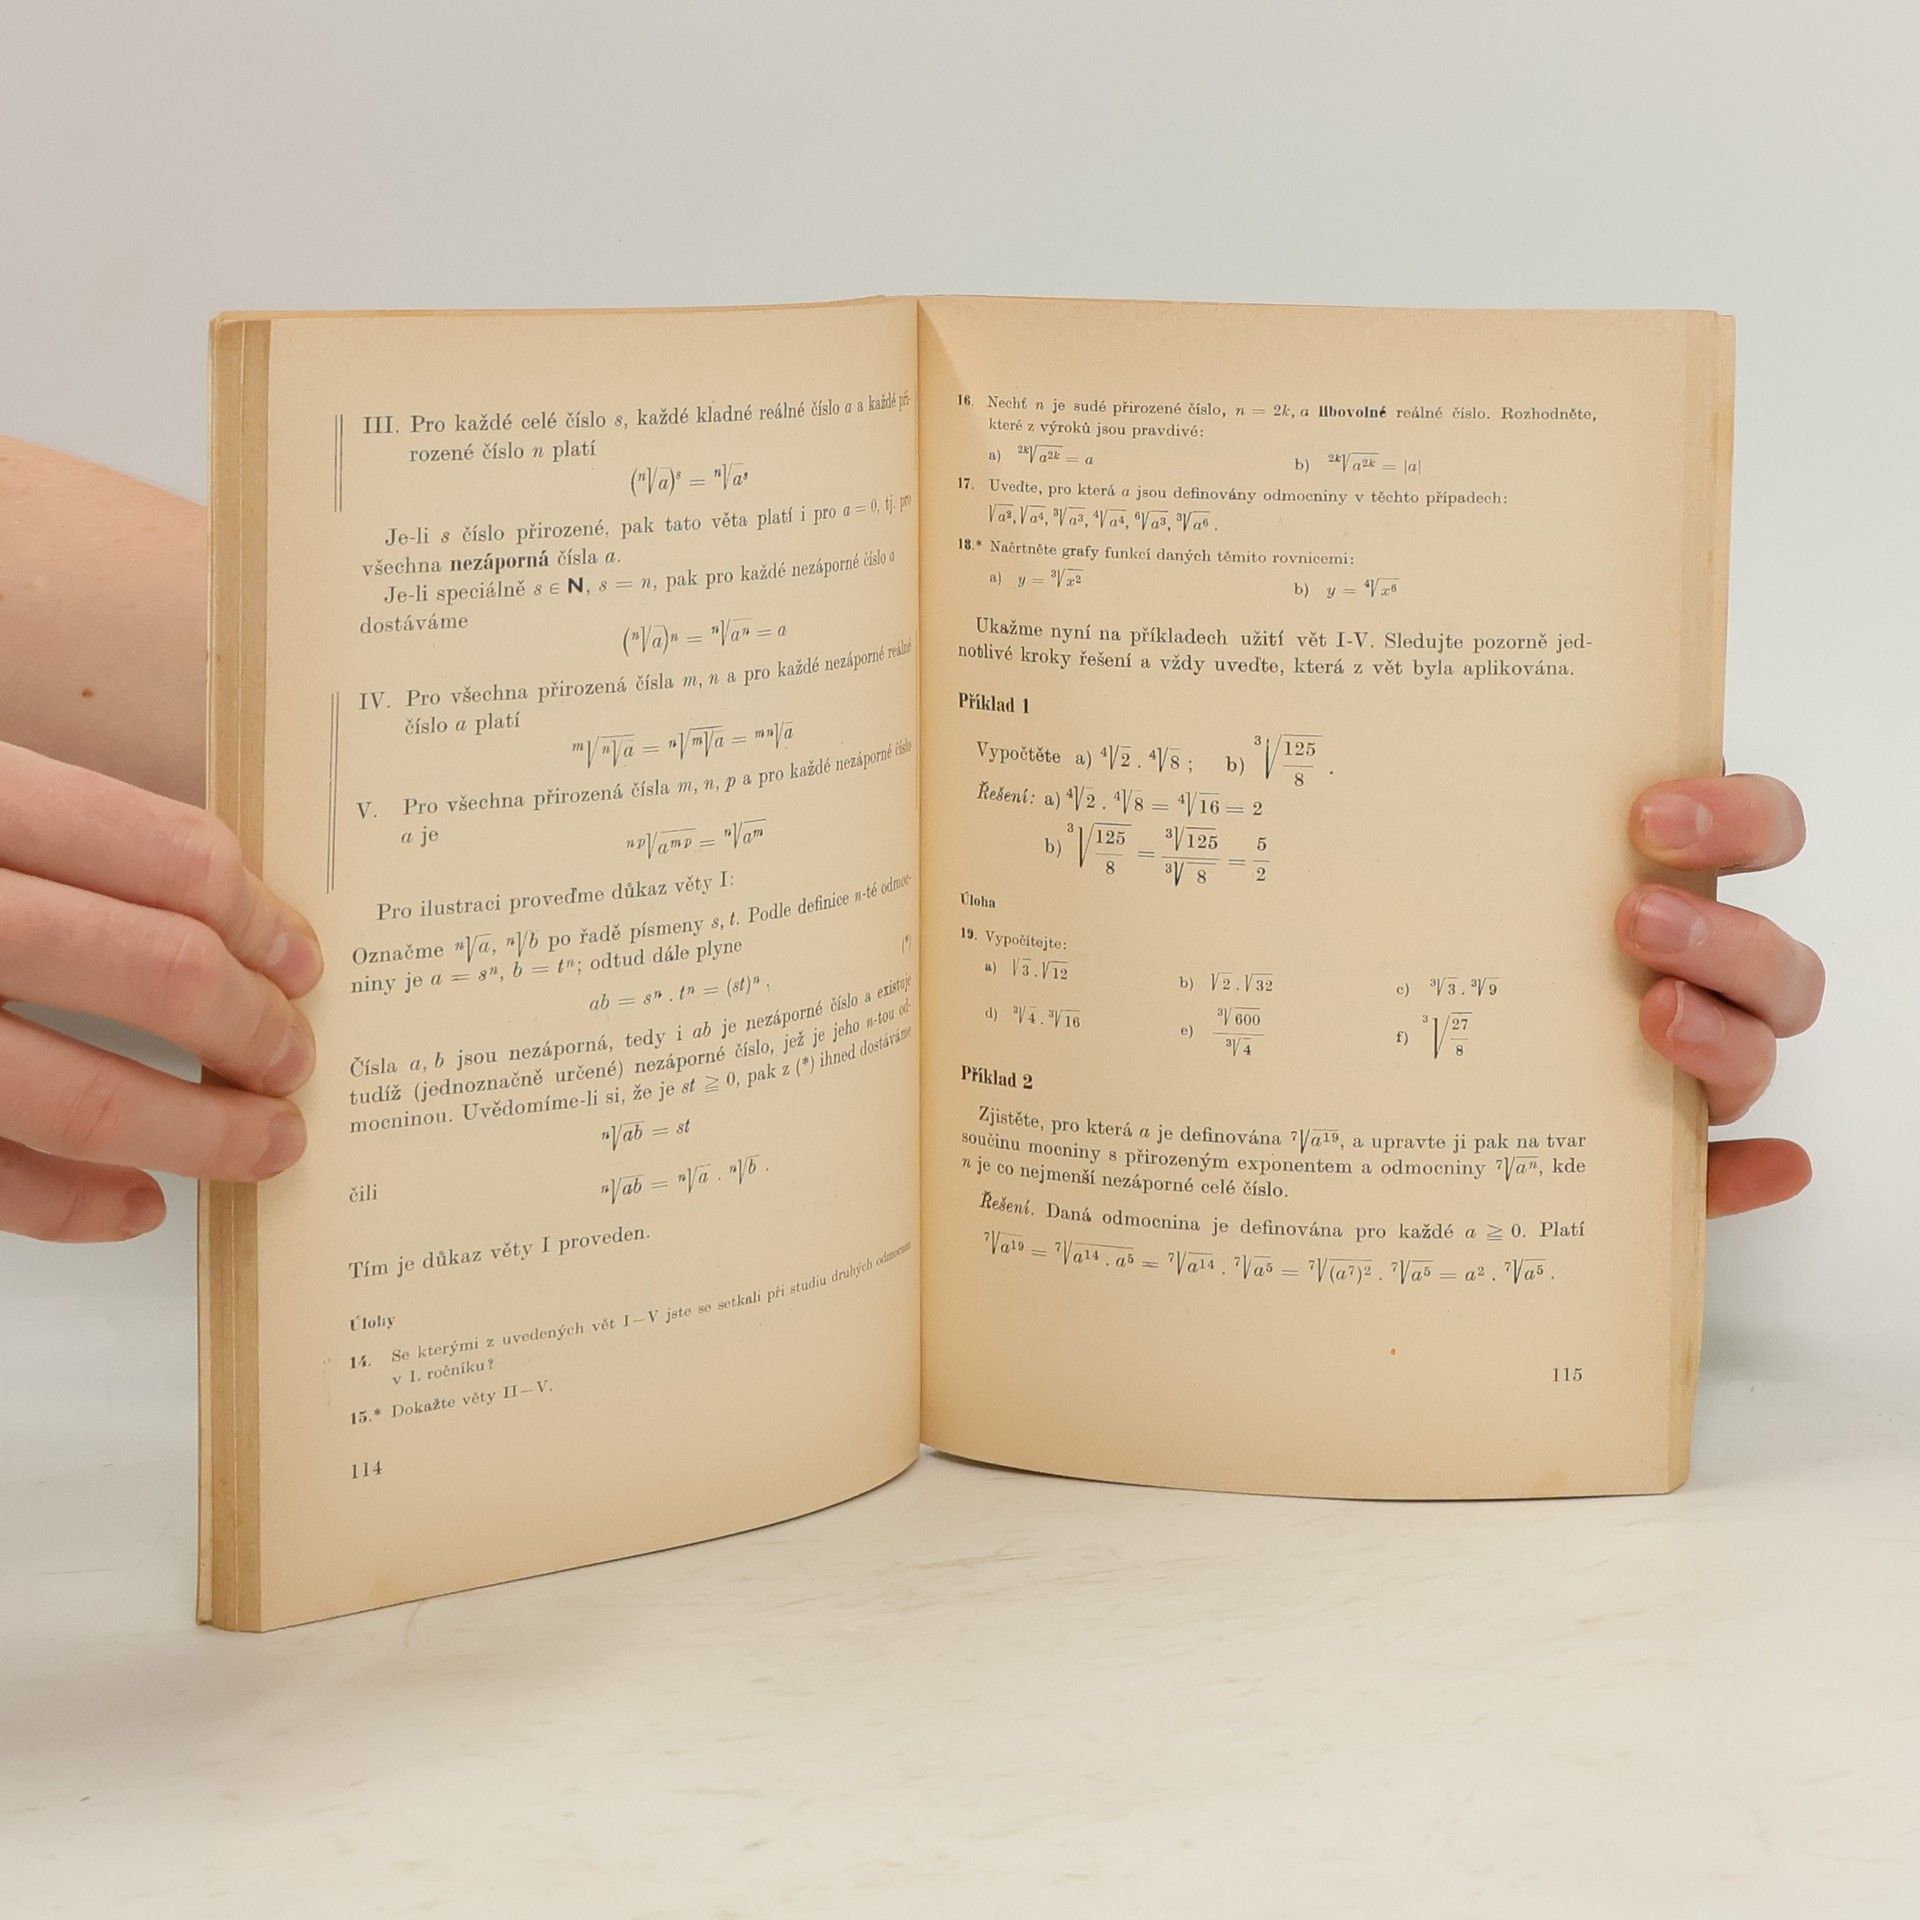 III. Pro každé celé číslo s, každé kladné reálné číslo a a každé při-
rozené číslo n platí
(ⁿ√a)ˢ = ⁿ√aˢ
Je-li s číslo přirozené, pak tato věta platí i pro a = 0, tj. pro
všechna nezáporná čísla a.
Je-li speciálně s ∈ N, s = n, pak pro každé nezáporné číslo a
dostáváme
(ⁿ√a)ⁿ = ⁿ√aⁿ = a
IV. Pro všechna přirozená čísla m, n a pro každé nezáporné reálné
číslo a platí
ᵐ√(ⁿ√a) = ⁿ√(ᵐ√a) = ᵐⁿ√a
V. Pro všechna přirozená čísla m, n, p a pro každé nezáporné číslo
a je
ⁿᵖ√aᵐᵖ = ⁿ√aᵐ
Pro ilustraci proveďme důkaz věty I:
Označme ⁿ√a, ⁿ√b po řadě písmeny s, t. Podle definice n-té odmoc-
niny je a = sⁿ, b = tⁿ; odtud dále plyne
ab = sⁿ . tⁿ = (st)ⁿ. (*)
Čísla a, b jsou nezáporná, tedy i ab je nezáporné číslo a existuje
tudíž (jednoznačně určené) nezáporné číslo, jež je jeho n-tou od-
mocninou. Uvědomíme-li si, že je st ≧ 0, pak z (*) ihned dostáváme
ⁿ√ab = st
čili ⁿ√ab = ⁿ√a . ⁿ√b .
Tím je důkaz věty I proveden.
Úlohy
14. Se kterými z uvedených vět I–V jste se setkali při studiu druhých odmocnin
v I. ročníku?
15.* Dokažte věty II–V.
114
16. Nechť n je sudé přirozené číslo, n = 2k, a libovolné reálné číslo. Rozhodněte,
které z výroků jsou pravdivé:
a) ²ᵏ√a²ᵏ = a b) ²ᵏ√a²ᵏ = |a|
17. Uveďte, pro která a jsou definovány odmocniny v těchto případech:
√a², √a⁴, ³√a³, ⁴√a⁴, ⁶√a³, ³√a⁶ .
18.* Načrtněte grafy funkcí daných těmito rovnicemi:
a) y = ³√x² b) y = ⁴√x⁶
Ukažme nyní na příkladech užití vět I-V. Sledujte pozorně jed-
notlivé kroky řešení a vždy uveďte, která z vět byla aplikována.
Příklad 1
Vypočtěte a) ⁴√2 . ⁴√8 ; b) ³√(125/8) .
Řešení: a) ⁴√2 . ⁴√8 = ⁴√16 = 2
b) ³√(125/8) = ³√125/³√8 = 5/2
Úloha
19. Vypočítejte:
a) √3 . √12 b) √2 . √32 c) ³√3 . ³√9
d) ³√4 . ³√16 e) ³√600/³√4 f) ³√(27/8)
Příklad 2
Zjistěte, pro která a je definována ⁷√a¹⁹, a upravte ji pak na tvar
součinu mocniny s přirozeným exponentem a odmocniny ⁷√aⁿ, kde
n je co nejmenší nezáporné celé číslo.
Řešení. Daná odmocnina je definována pro každé a ≧ 0. Platí
⁷√a¹⁹ = ⁷√(a¹⁴ . a⁵) = ⁷√a¹⁴ . ⁷√a⁵ = ⁷√(a⁷)² . ⁷√a⁵ = a² . ⁷√a⁵ .
115